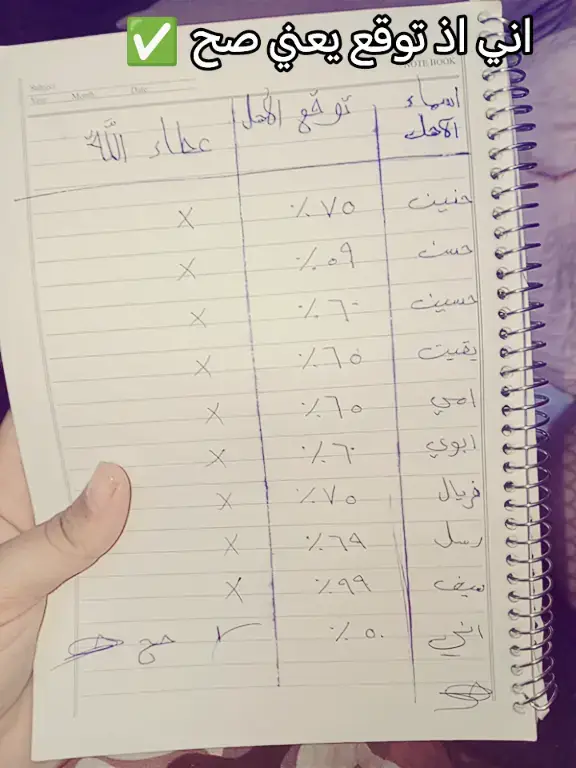 اني اذ توقع يعني صح ✅
NOTE BOOK
Subject
Year Month Date
اسماء الآهل توقع الآهل عطاء اللّٰه
حنين ٧٥٪ X
حسن ٠٩٪ X
حسين ٦٠٪ X
يقين ٦٥٪ X
امي ٦٥٪ X
ابوي ٦٠٪ X
فريال ٧٥٪ X
رسل ٦٩٪ X
سيف ٩٩٪ X
اني ٥٠٪ ✓ صح